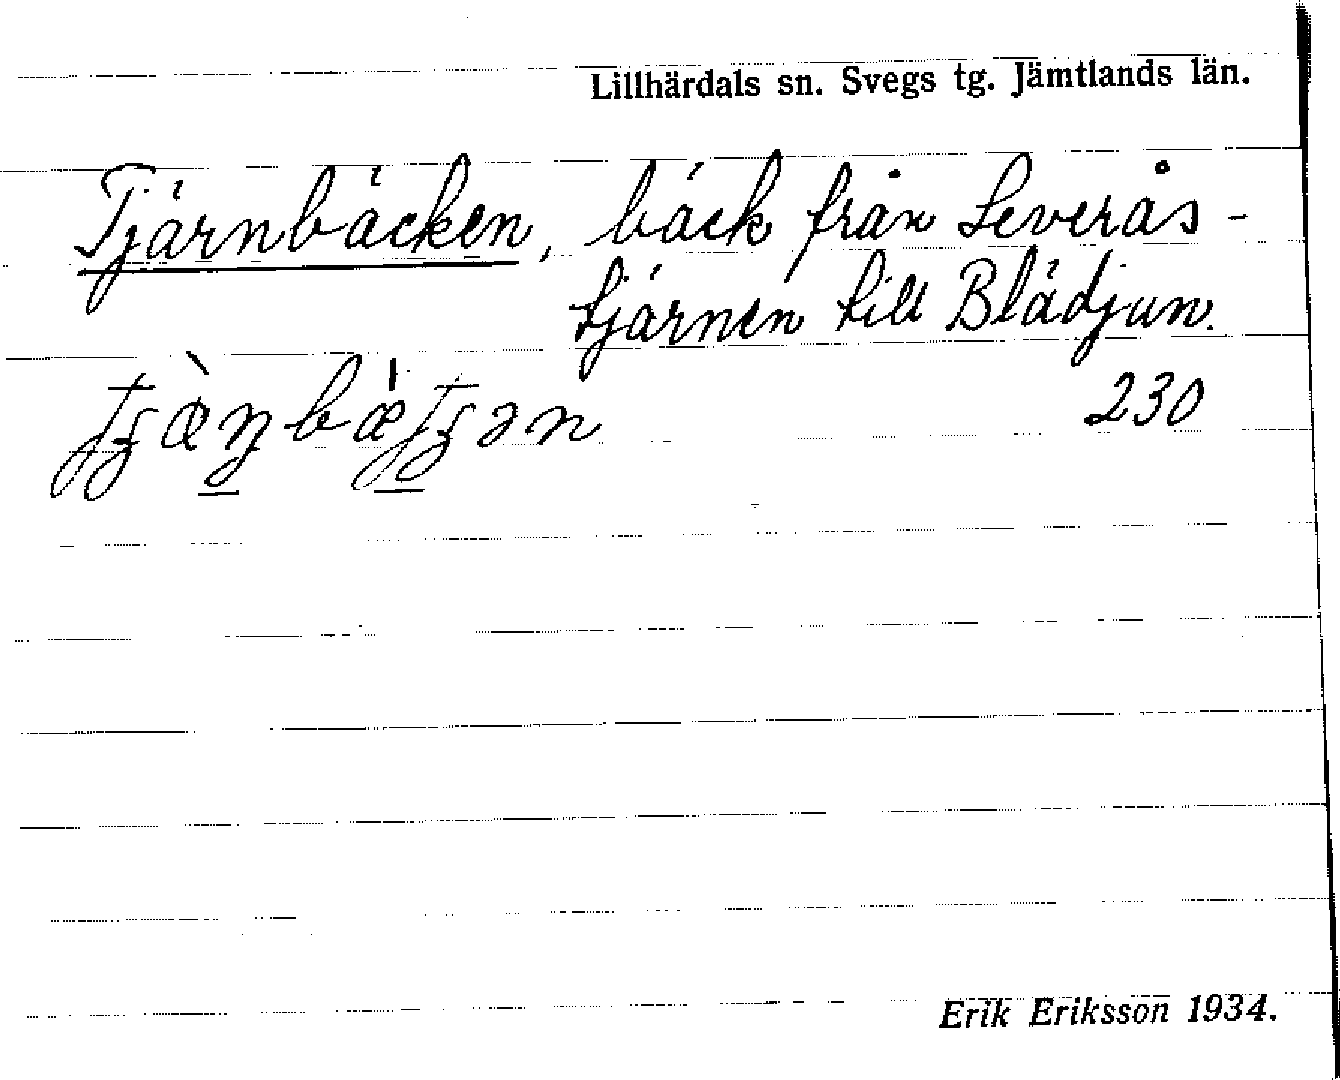 Lillhärdals sn. Svegs tg. Jämtlands län.
Tjärnbäcken, bäck från Leverås-
tjärnen till Blädjun.
230
Erik Eriksson 1934.